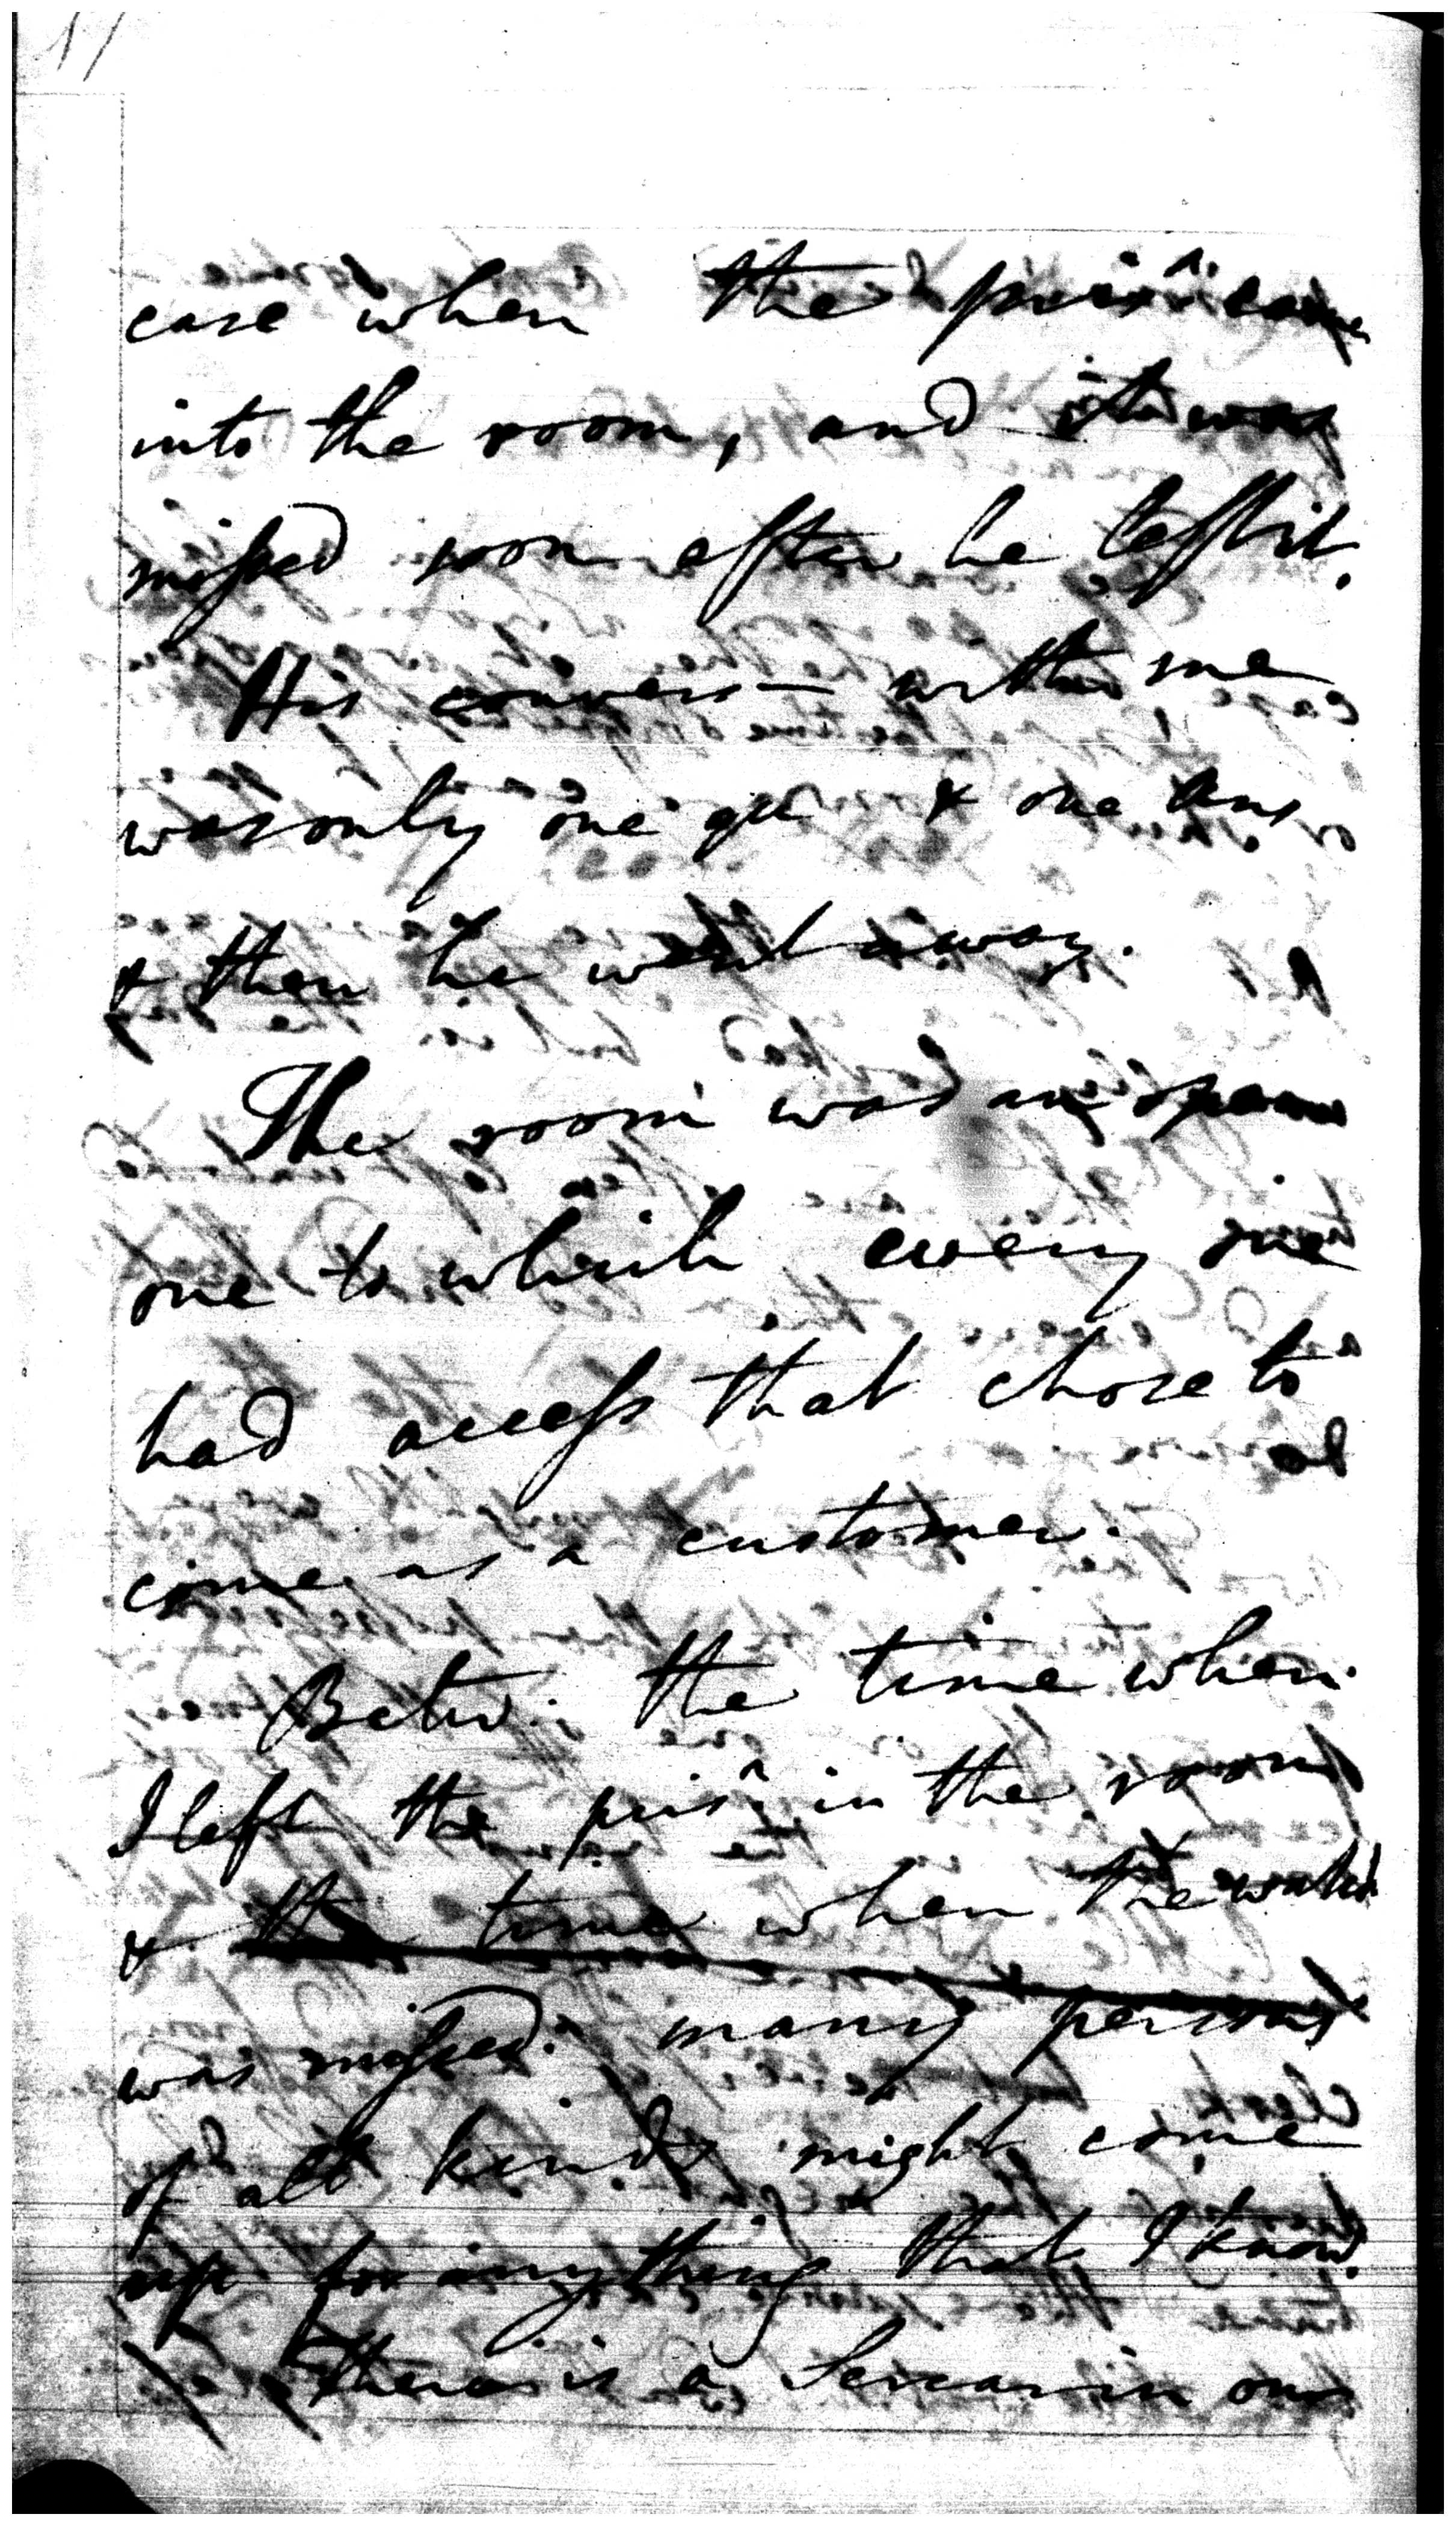 17
case when the prisr came
into the room, and it was
missed soon after he left it.
His convers— with me
was only one qu & one ans
& then he went away.
The room was an open
one to which every one
had access that chose to
come as a customer.
Betw. the time when
I left the prisr in the room
& the time when the watch
was missed many persons
of all kinds might come
up for anything that I know.
There is a Screen in our